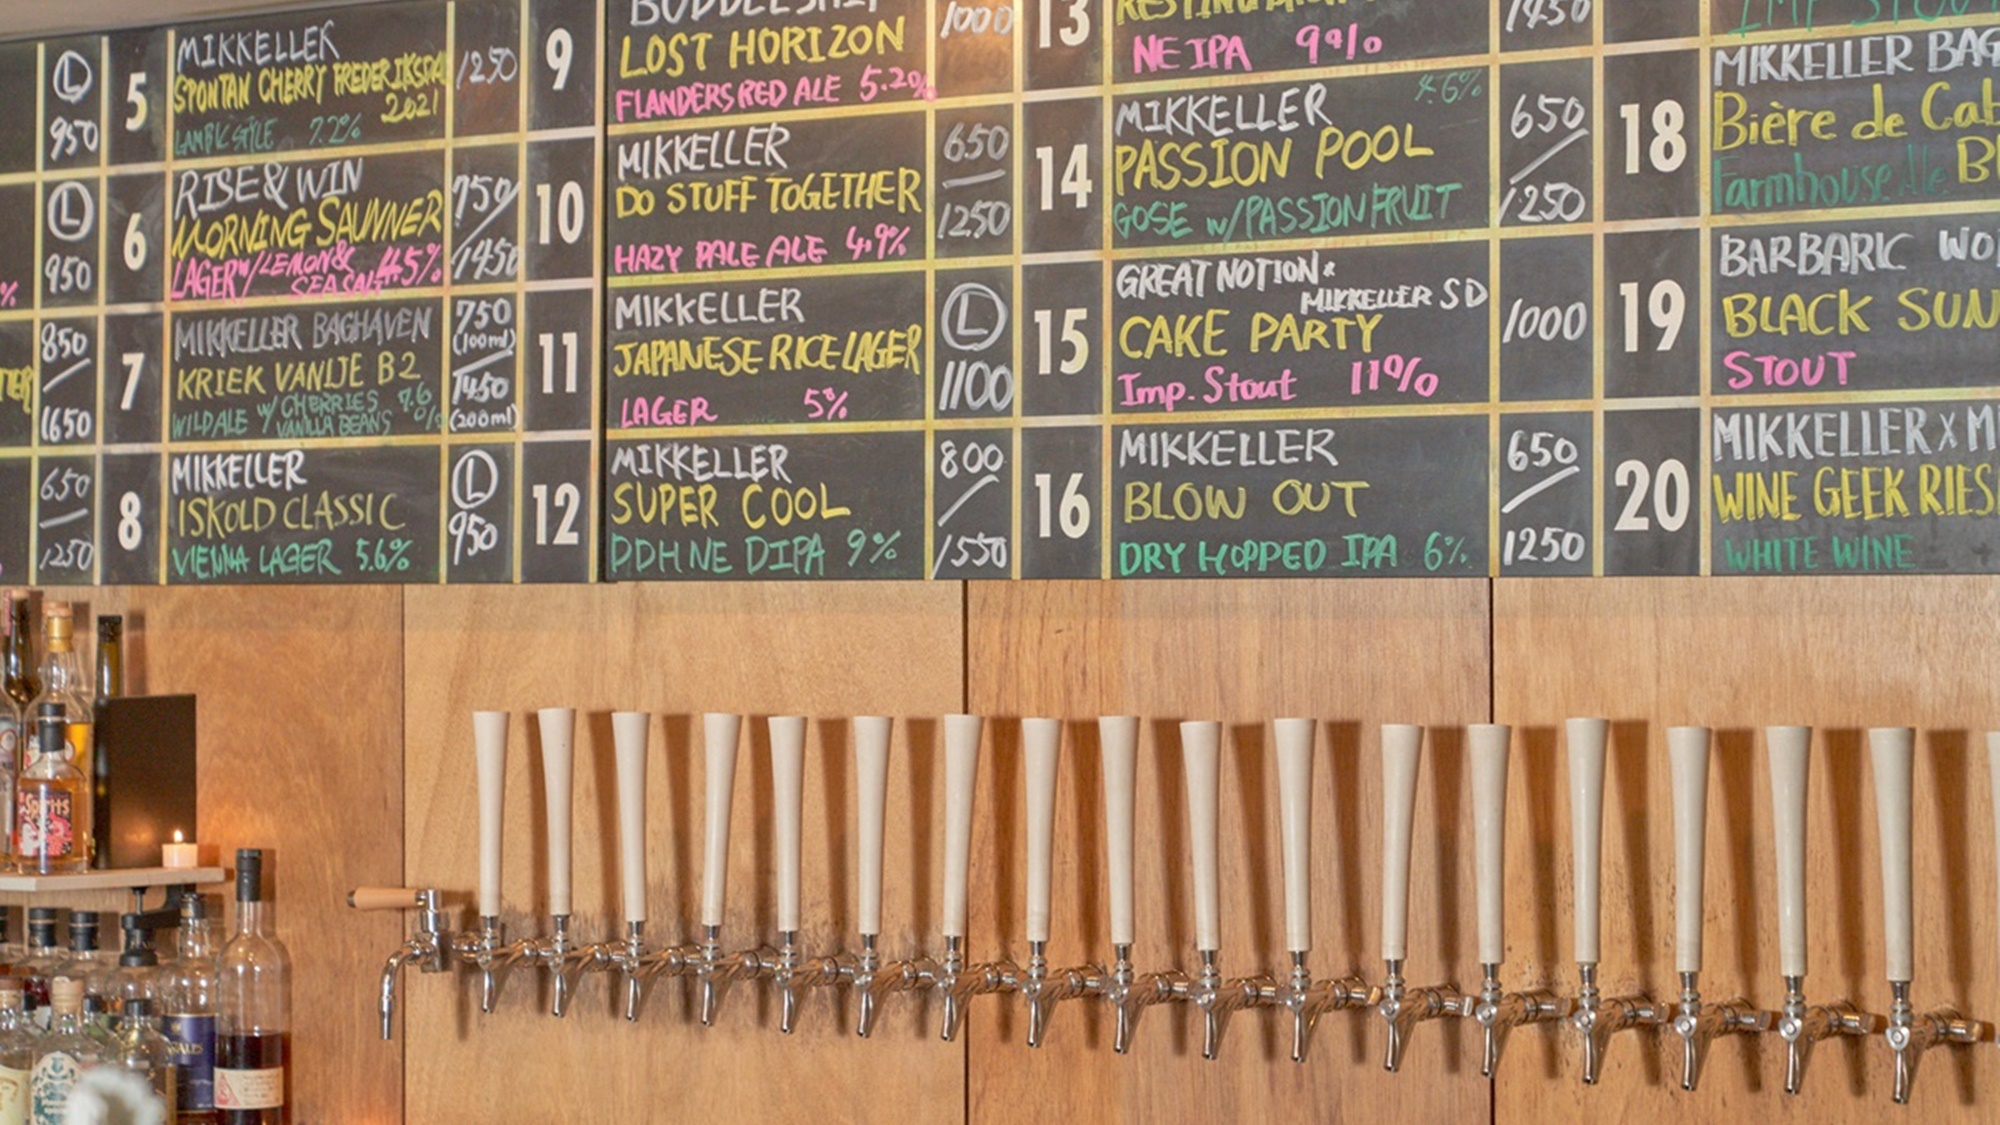 %
TER
L
950
L
950
850
1650
650
1250
5
MIKKELLER
SPONTAN CHERRY FREDERIKSDAL
2021
LAMBIC STYLE 7.2%
1250
6
RISE & WIN
MORNING SAUNNER
LAGER w/ LEMON &
SEASALT 4.5%
750
1450
7
MIKKELLER BAGHAVEN
KRIEK VANLJE B2
WILD ALE w/ CHERRIES 7.6
VANILLA BEANS %
750
(100ml)
1450
(200ml)
8
MIKKELLER
ISKOLD CLASSIC
VIENNA LAGER 5.6%
L
950
9
LOST HORIZON
FLANDERS RED ALE 5.2%
1000
10
MIKKELLER
DO STUFF TOGETHER
HAZY PALE ALE 4.9%
650
1250
11
MIKKELLER
JAPANESE RICE LAGER
LAGER 5%
L
1100
12
MIKKELLER
SUPER COOL
DDH NE DIPA 9%
800
1550
13
NE IPA 9%
1450
14
MIKKELLER 4.6%
PASSION POOL
GOSE w/ PASSION FRUIT
650
1250
15
GREAT NOTION x
MIKKELLER SD
CAKE PARTY
Imp. Stout 11%
1000
16
MIKKELLER
BLOW OUT
DRY HOPPED IPA 6%
650
1250
IMP STOUT
18
MIKKELLER BAG
Bière de Cab
Farmhouse Ale Bl
19
BARBARIC WO
BLACK SUN
STOUT
20
MIKKELLER x MI
WINE GEEK RIES
WHITE WINE
Spirits